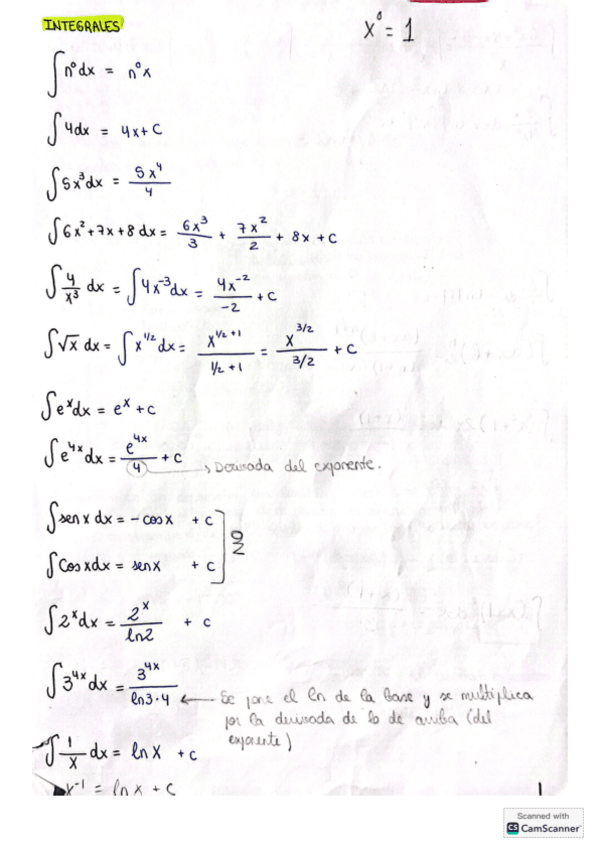 INTEGRALES
x⁰ = 1
∫n⁰dx = n⁰x
∫4dx = 4x + C
∫5x³dx = 5x⁴/4
∫6x² + 7x + 8 dx = 6x³/3 + 7x²/2 + 8x + C
∫4/x³ dx = ∫4x⁻³dx = 4x⁻²/-2 + C
∫√x dx = ∫x^(1/2) dx = x^(1/2 + 1)/(1/2 + 1) = x^(3/2)/(3/2) + C
∫eˣdx = eˣ + C
∫e⁴ˣdx = e⁴ˣ/4 + C → Derivada del exponente.
∫sen x dx = - cos x + C
NO
∫Cos x dx = sen x + C
∫2ˣdx = 2ˣ/ln2 + C
∫3⁴ˣ dx = 3⁴ˣ/ln3·4 ← Se pone el ln de la base y se multiplica
por la derivada de lo de arriba (del
exponente)
∫1/x dx = ln x + C
x⁻¹ = ln x + C
1
Scanned with
CS CamScanner